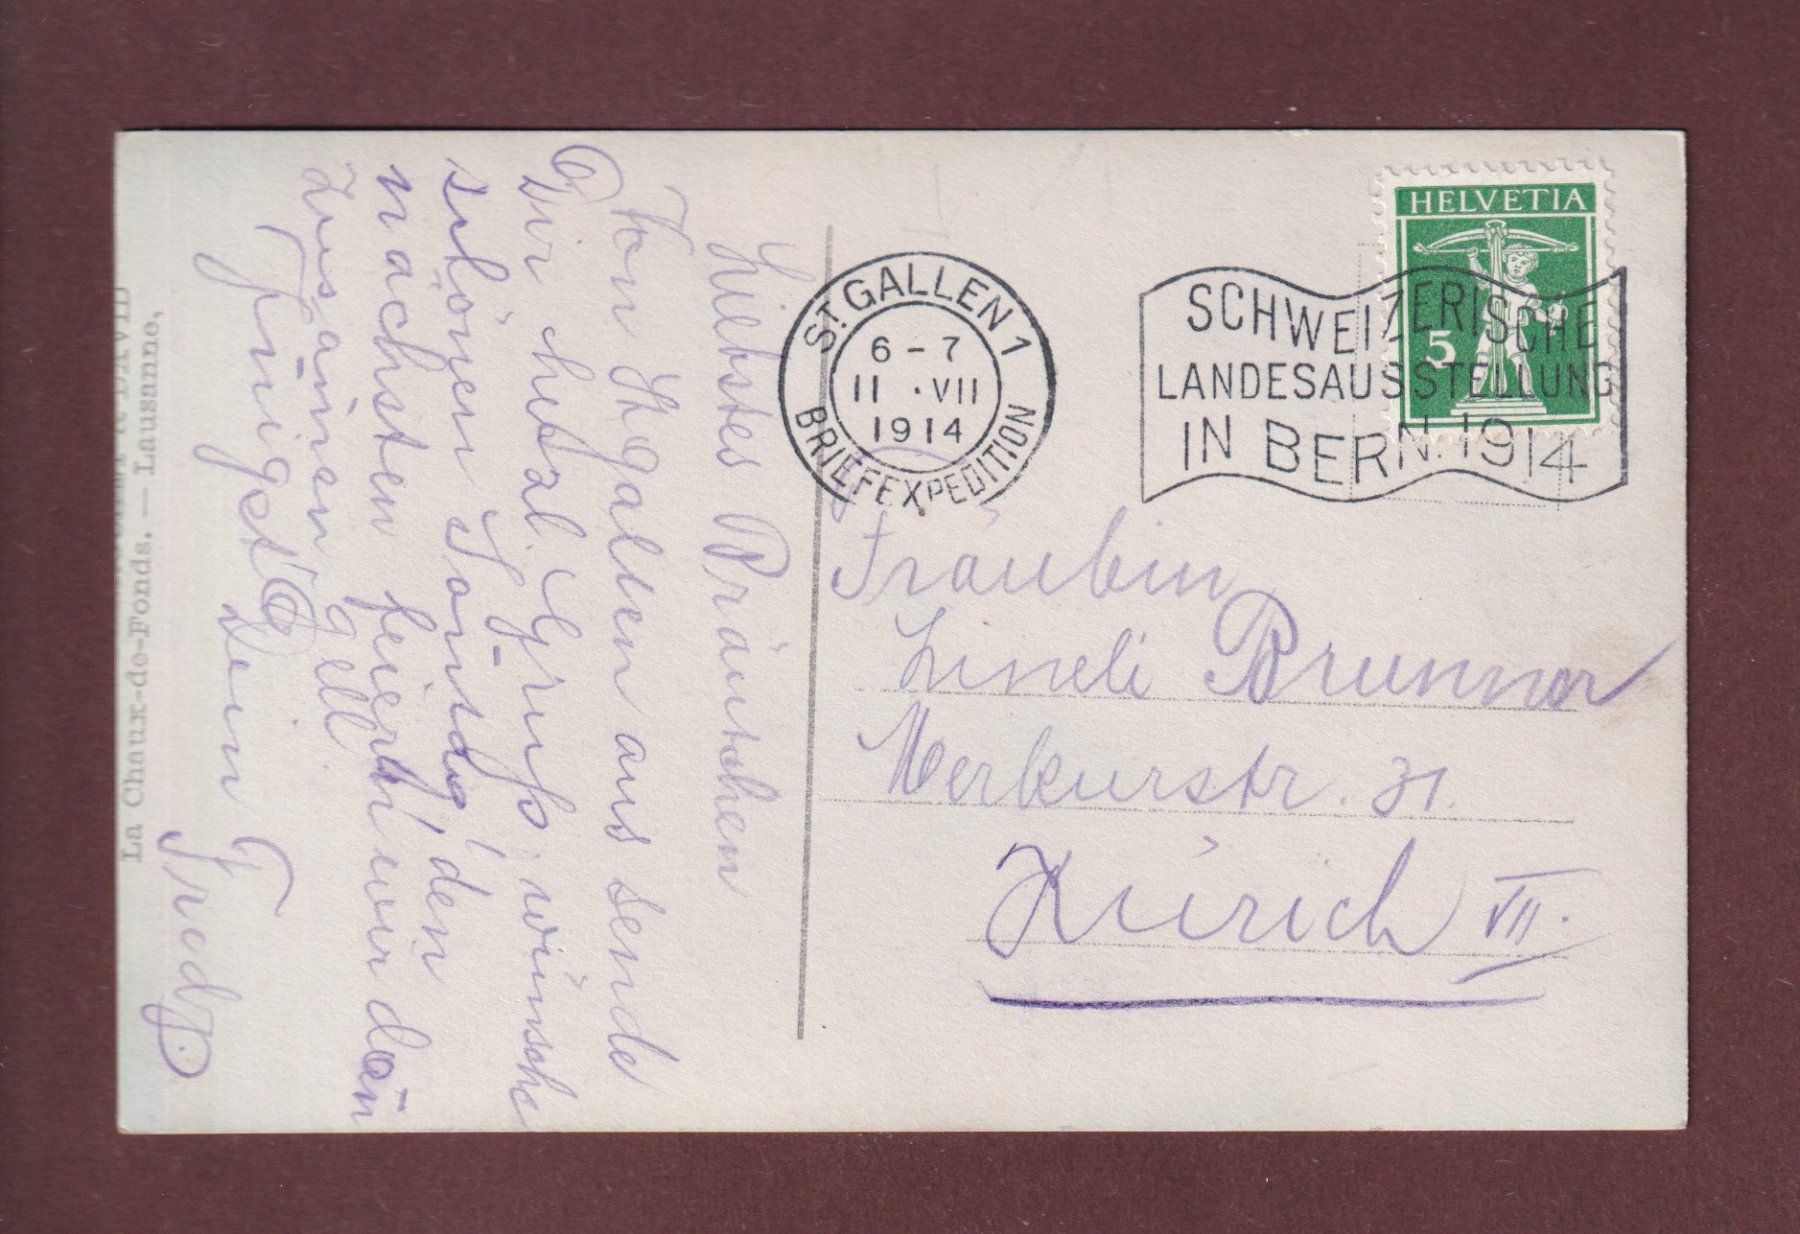 Liebstes Bräutchen
Von St. Gallen aus sende
Dir herzl. Gruß, wünsche
schönen Sonntag, den
nächsten feiern wir dan̄
zusam̄en gell.
Innigst Dein
Fredy.
La Chaux-de-Fonds. — Lausanne,
ST. GALLEN 1
6-7
11 . VII
1914
BRIEFEXPEDITION
SCHWEIZERISCHE
LANDESAUSSTELLUNG
IN BERN. 1914
HELVETIA
5
Fräulein
Lineli Brunner
Merkurstr. 31.
Zürich VII.